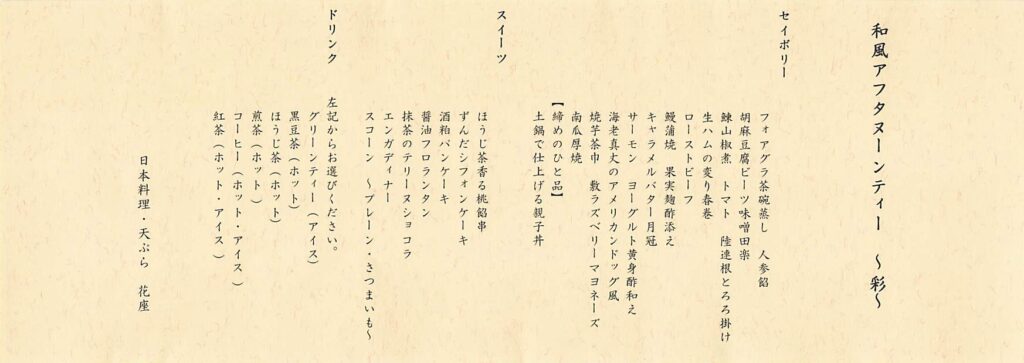 和風アフタヌーンティー ～彩～
セイボリー
フォアグラ茶碗蒸し 人参餡
胡麻豆腐ビーツ味噌田楽
鰊山椒煮 トマト 陸連根とろろ掛け
生ハムの変り春巻
ローストビーフ
鰻蒲焼 果実麹酢添え
キャラメルバター月冠
サーモン ヨーグルト黄身酢和え
海老真丈のアメリカンドッグ風
焼芋茶巾 敷ラズベリーマヨネーズ
南瓜厚焼
【締めのひと品】
土鍋で仕上げる親子丼
スイーツ
ほうじ茶香る桃餡串
ずんだシフォンケーキ
酒粕パンケーキ
醤油フロランタン
抹茶のテリーヌショコラ
エンガディナー
スコーン ～プレーン・さつまいも～
ドリンク
左記からお選びください。
グリーンティー(アイス)
黒豆茶(ホット)
ほうじ茶(ホット)
煎茶(ホット)
コーヒー(ホット・アイス)
紅茶(ホット・アイス)
日本料理・天ぷら 花座